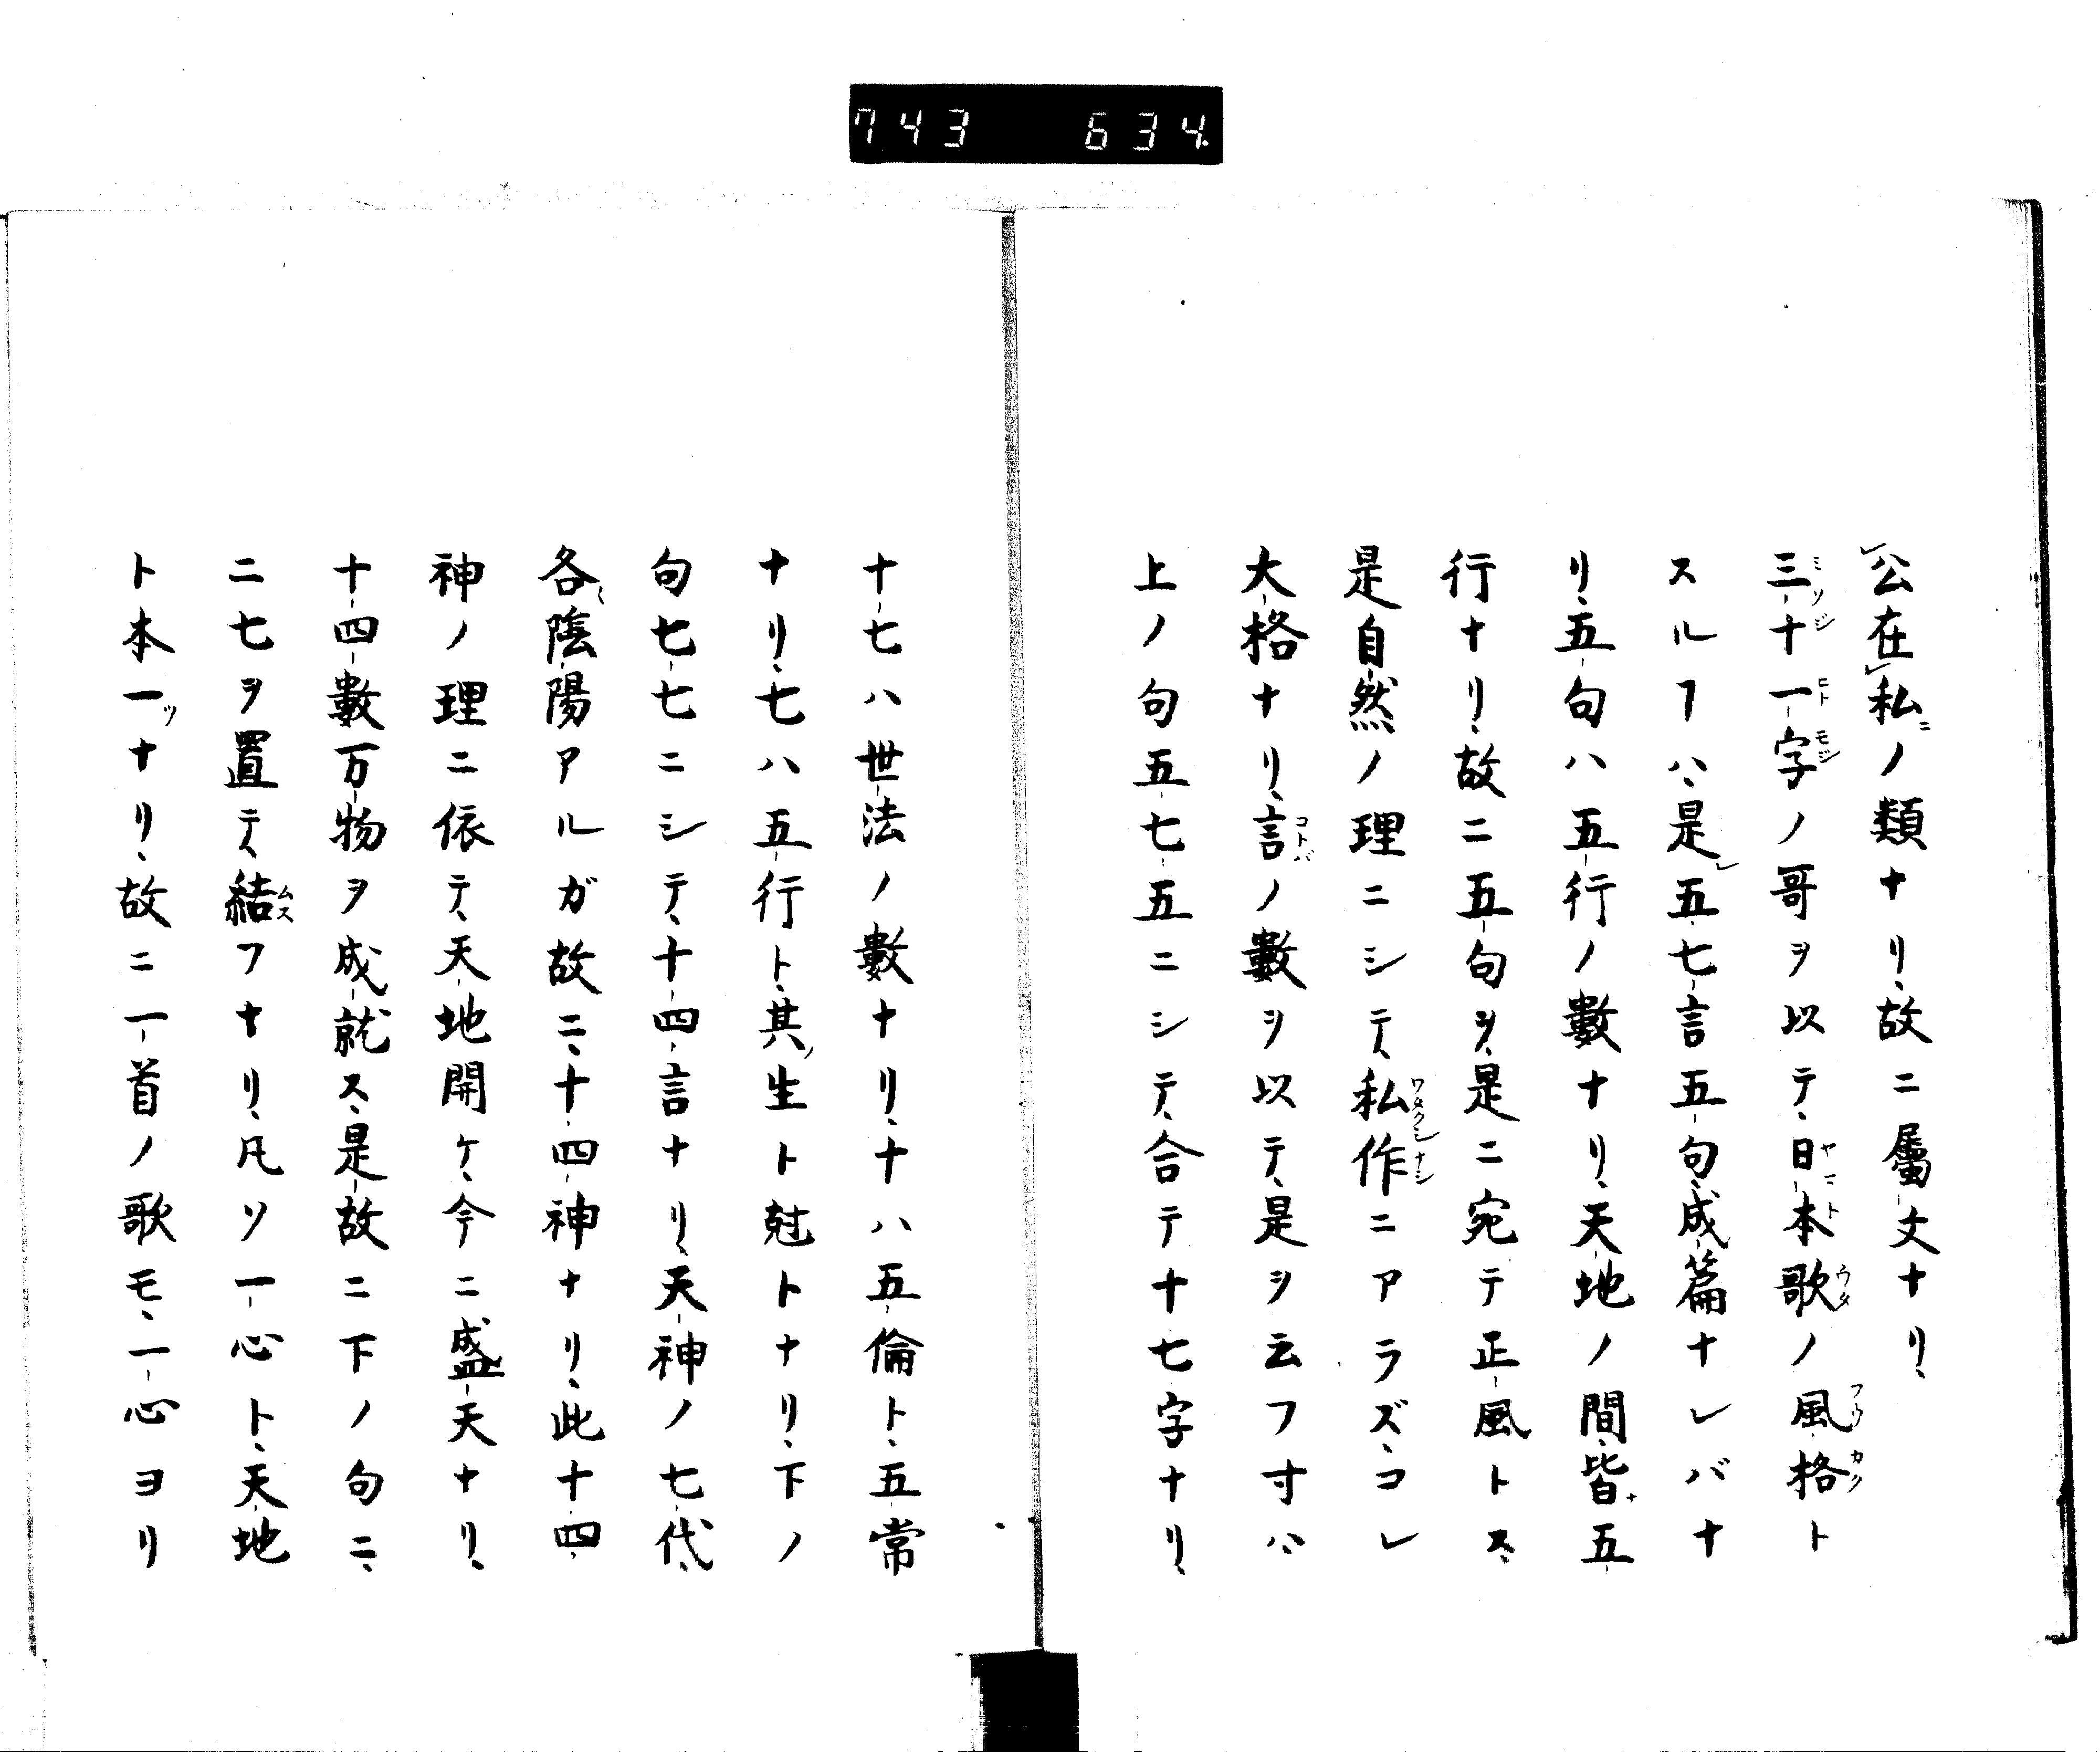 743 634
公在私ニノ類ナリ、故ニ屬文ナリ、
三十一字ノ哥ヲ以テ、日本歌ノ風格ト
スルヿハ、是レ五七言五句成篇ナレバナ
リ、五句ハ五行ノ數ナリ、天地ノ間、皆ナ五
行ナリ、故ニ五句ヲ、是ニ宛テ正風トス、
是自然ノ理ニシテ、私作ニアラズ、コレ
大格ナリ、言ノ數ヲ以テ、是ヲ云フ寸ハ、
上ノ句五七五ニシテ、合テ十七字ナリ、
十七ハ世法ノ數ナリ、十ハ五倫ト、五常
ナリ、七ハ五行ト、其ノ生ト尅トナリ、下ノ
句七七ニシテ、十四言ナリ、天神ノ七代、
各〻陰陽アルガ故ニ、十四神ナリ、此十四
神ノ理ニ依テ、天地開ケ、今ニ盛天ナリ、
十四數万物ヲ成就ス、是故ニ下ノ句ニ、
ニ七ヲ置テ、結フナリ、凡ソ一心ト、天地
ト本一ツナリ、故ニ一首ノ歌モ、一心ヨリ
ミソジ
ヒト
モジ
ヤマト
ウタ
フウ
カク
ワタクシナシ
コトバ
ムス